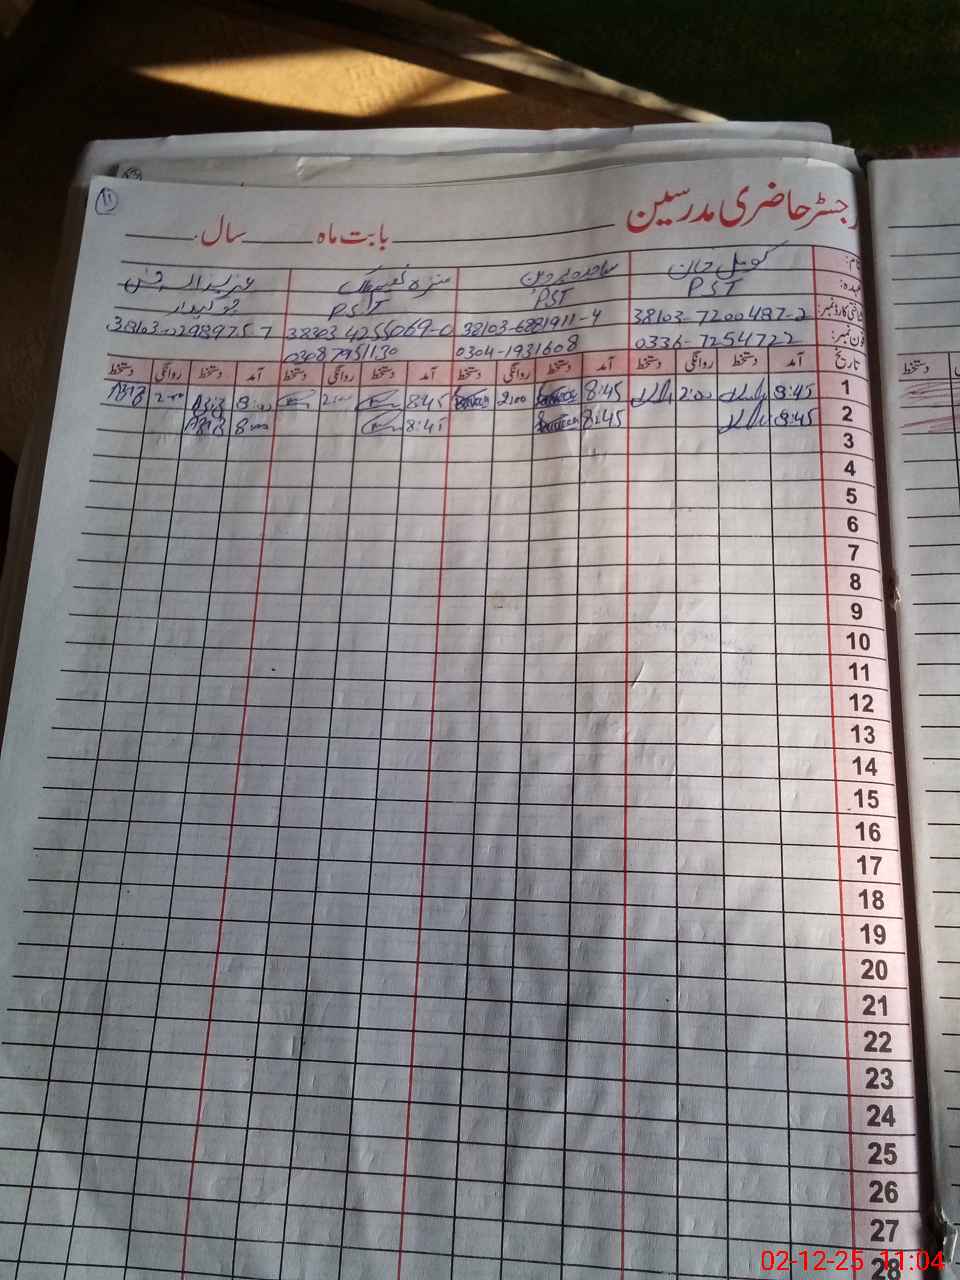 11
رجسٹر حاضری مدرسین
بابت ماہ سال
نام: کومل خان ساجدہ پروین منزہ
عہدہ: PST PST PST چوکیدار
شناختی کارڈ نمبر: 38103-7200487-2 38103-6881911-4 38303 4255069-0
فون نمبر: 0336-7254722 0304-1931608 03087951130
تاریخ آمد دستخط روانگی دستخط آمد دستخط روانگی دستخط آمد دستخط روانگی دستخط آمد دستخط روانگی دستخط
1 8:45 2:00 8:45 2:00 8:45 2:00 8:00 Aziz 2:00 Aziz
2 8:45 8:45 8:45 8:00 Aziz
3
4
5
6
7
8
9
10
11
12
13
14
15
16
17
18
19
20
21
22
23
24
25
26
27
28
02-12-25 11:04